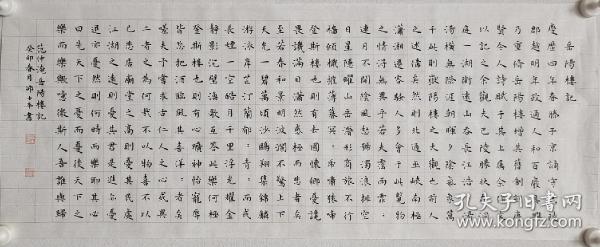 岳陽樓記
慶曆四年春滕子京謫守巴陵
郡越明年政通人和百廢具興
乃重修岳陽樓增其舊制刻唐
賢今人詩賦于其上屬余作文
以記之余觀夫巴陵勝狀在洞
庭一湖銜遠山吞長江浩浩
湯湯橫無際涯朝暉夕陰氣象萬
千此則岳陽樓之大觀也前人
之述備矣然則北通巫峽南極
瀟湘遷客騷人多會于此覽物
之情得無異乎若夫霪雨霏霏
連月不開陰風怒號濁浪排空
日星隱曜山岳潛形商旅不行
檣傾楫摧薄暮冥冥虎嘯猿啼
登斯樓也則有去國懷鄉憂讒
畏譏滿目蕭然感極而悲者矣
至若春和景明波瀾不驚上下
天光一碧萬頃沙鷗翔集錦鱗
游泳岸芷汀蘭郁郁青青而或
長煙一空皓月千里浮光躍金
靜影沉璧漁歌互答此樂何極
登斯樓也則有心曠神怡寵辱
皆忘把酒臨風其喜洋洋者矣
嗟夫予嘗求古仁人之心或異
二者之為何哉不以物喜不以
己悲居廟堂之高則憂其民處
江湖之遠則憂其君是進亦憂
退亦憂然則何時而樂耶其必
曰先天下之憂而憂後天下之
樂而樂歟噫微斯人吾誰與歸
范仲淹岳陽樓記
癸卯春月
孔夫子旧书网